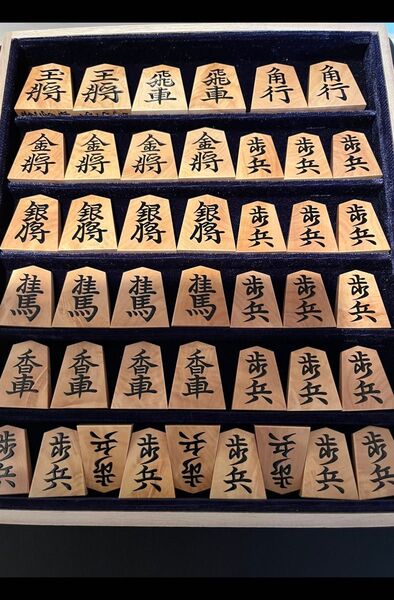 玉将 王将 飛車 飛車 角行 角行
金将 金将 金将 金将 歩兵 歩兵 歩兵
銀将 銀将 銀将 銀将 歩兵 歩兵 歩兵
桂馬 桂馬 桂馬 桂馬 歩兵 歩兵 歩兵
香車 香車 香車 香車 歩兵 歩兵 歩兵
歩兵 歩兵 歩兵 歩兵 歩兵 歩兵 歩兵 歩兵 歩兵